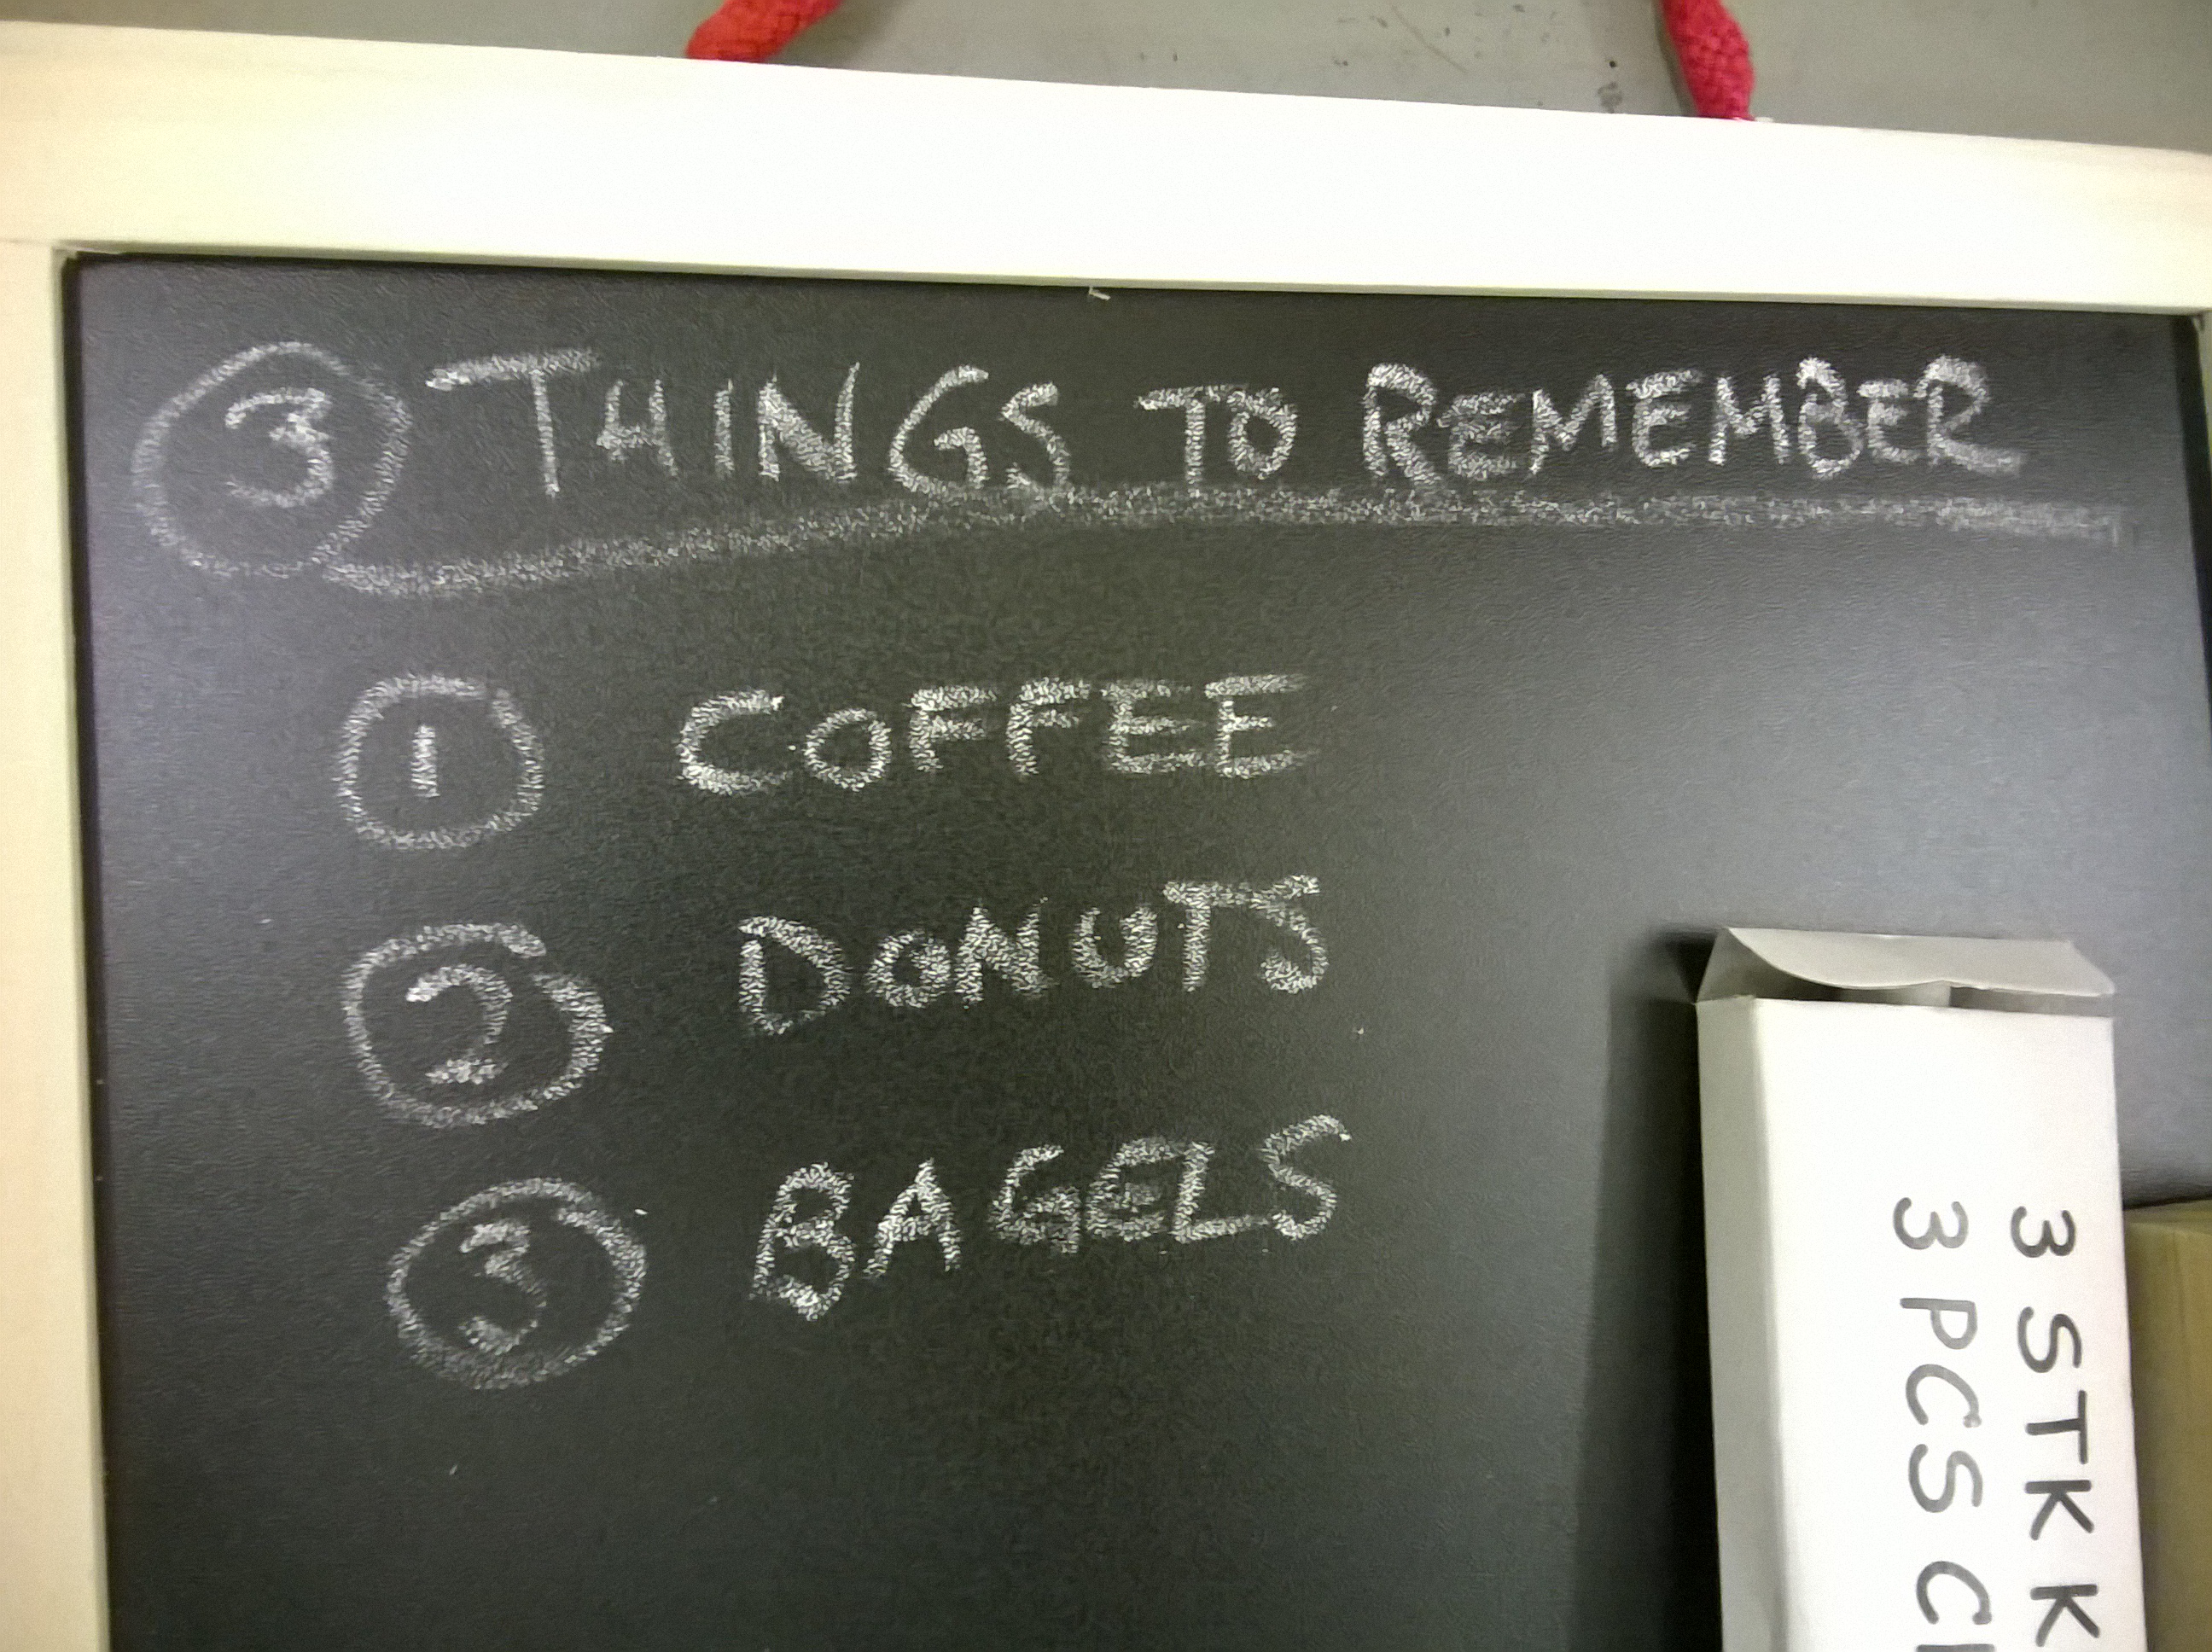 3 THINGS TO REMEMBER
1 COFFEE
2 DONUTS
3 BAGELS
3 STK K
3 PCS